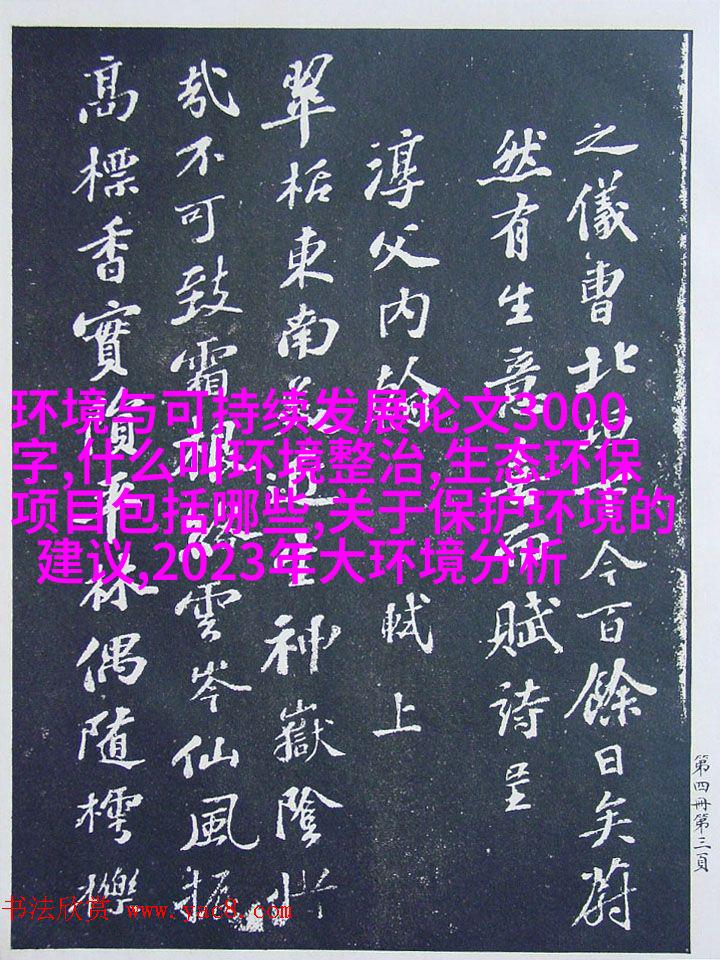 环境与可持续发展论文3000
字,什么叫环境整治,生态环保
项目包括哪些,关于保护环境的
建议,2023年大环境分析
之儀曹北垣下今百餘日矣蔚
然有生意喜而賦詩呈
淳父內翰 軾上
翠栝東南美近生神嶽陰惜
哉不可致霜根絡雲岑仙風振
高標香實隕平林偶隨樗櫟
第四冊第三頁
书法欣赏 www.yac8.com